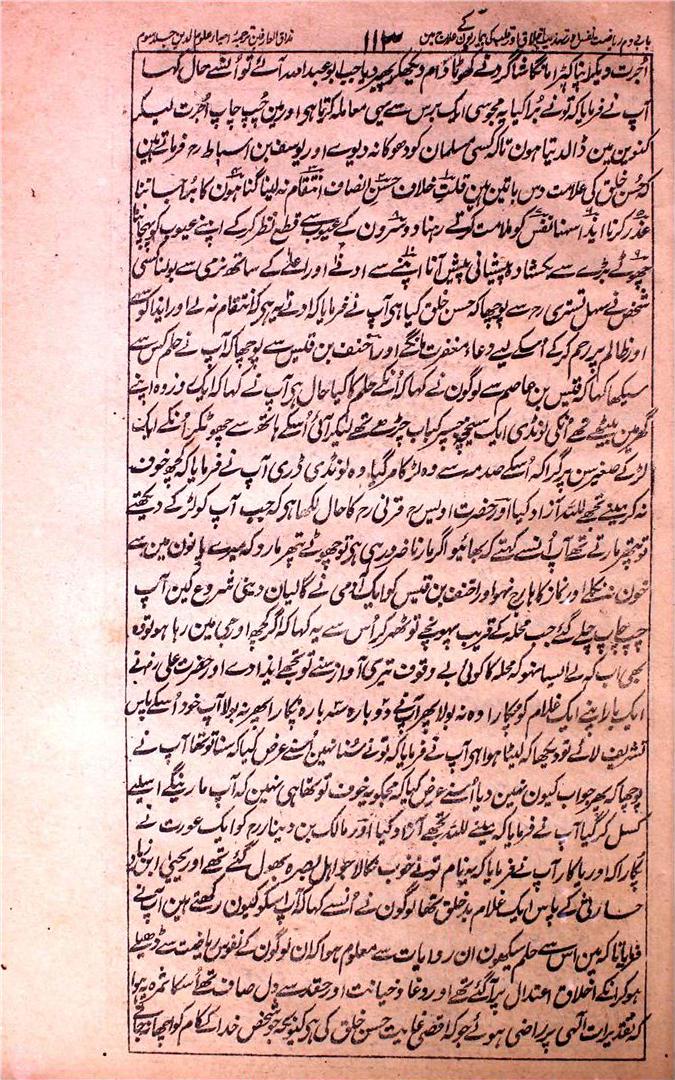 باب دوم ریاضت نفس و تہذیب اخلاق اور قلب کی بیماریوں کے علاج میں ۱۱۳ مذاق العارفین ترجمۂ احیاء علوم الدین جلد سوم
اُجرت دیکر اپنا کپڑا مانگا شاگرد نے کھوٹا دام دیکھکر پھیر دیا جب ابو عبداللہ آئے تو اُنسے حال کہا
آپ نے فرمایا کہ تو نے بُرا کیا یہ مجوسی ایک برس سے یہی معاملہ کرتا ہی اور مین چپ چاپ اُجرت لیکر
کنوین مین ڈالدیتا ہون تاکہ کسی مسلمان کو دھوکا نہ دیوے اور یوسف بن اسباط رح فرماتے ہین
کہ حُسن خلق کی علامت دس باتین ہین قلت خلاف حسن انصاف انتقام نہ لینا گناہون کا بُرا جاننا
عذر کرنا ایذا سہنا نفس کو ملامت کرتے رہنا دوسرون کے عیوب سے قطع نظر کرکے اپنے عیوب کو پہچاننا
چھوٹے بڑے سے بکشادہ پیشانی پیش آنا اپنے سے ادنے اور اعلے کے ساتھ نرمی سے بولنا کسی
شخص نے سہل تستری رح سے پوچھا کہ حسن خلق کیا ہی آپ نے فرمایا کہ ادنے یہ ہی کہ انتقام نہ لے اور ایذا کو سہے
اور ظالم پر رحم کرکے اُسکے لیے دعاء مغفرت مانگے اور احنف بن قیس سے پوچھا کہ آپ نے حلم کس سے
سیکھا کہا کہ قیس بن عاصم سے لوگون نے کہا کہ اُنکے حلم کا کیا حال ہی آپ نے کہا کہ ایک روز وہ اپنے
گھر مین بیٹھے تھے اُنکی لونڈی ایک سیخچہ جسپر کباب چڑھے تھے لیکر آئی اُسکے ہاتھ سے چھوٹکر اُنکے ایک
لڑکے صغیر سن پر گرا کہ اُسکے صدمہ سے وہ لڑکا مر گیا وہ لونڈی ڈری آپ نے فرمایا کہ کچھ خوف
نہ کر مینے تجھے للہ آزاد کیا اور حضرت اویس قرنی رح کا حال لکھا ہی کہ جب آپ کو لڑکے دیکھتے
تو پتھر مارتے تھے آپ اُنسے کہتے کہ بھائیو اگر مارنا ضرور ہی ہی تو چھوٹے پتھر مارو کہ میرے پانون مین سے
خون نہ نکلے اور نماز کا ہارج نہو اور احنف بن قیس کو ایک آدمی نے گالیان دینی شروع کین آپ
چپ چاپ چلے گئے جب محلہ کے قریب پہونچے تو ٹھہر کر اُس سے یہ کہا کہ اگر کچھ اور جی مین رہا ہو تو وہ
بھی اب کہ لے ایسا نہو کہ محلہ کا کوئی بے وقوف تیری آواز سنے تو تجھے ایذا دے اور حضرت علی رض نے
ایک بار اپنے ایک غلام کو پکارا وہ نہ بولا پھر آپ نے دوبارہ سہ بارہ پکارا پھر نہ بولا آپ خود اُسکے پاس
تشریف لائے تو دیکھا کہ لیٹا ہوا ہی آپ نے فرمایا کہ تو نے سُنا نہین اُسنے عرض کیا کہ سنا تو تھا آپ نے
پوچھا کہ پھر جواب کیون نہین دیا اُسنے عرض کیا کہ مجکو یہ خوف تو تھا ہی نہین کہ آپ مارینگے اسلیے
کسل کر گیا آپ نے فرمایا کہ مینے للہ تجھے آزاد کیا اور مالک بن دینار رح کو ایک عورت نے
پکارا کہ او ریاکار آپ نے فرمایا کہ یہ نام تو نے خوب نکالا جو اہل بصرہ بھول گئے تھے اور یحیی ابن زیاد
حارثی کے پاس ایک غلام بدخلق تھا لوگون نے اُنسے کہا کہ آپ اسکو کیون رکھتے ہین آپ نے
فرمایا کہ مین اس سے حلم سیکھون ان روایات سے معلوم ہوا کہ ان لوگون کے نفوس ریاضت سے ڈھیلے
ہو کر انکے اخلاق اعتدال پر آ گئے تھے اور دغا و خیانت اور حقد سے دل صاف تھے اُسکا ثمرہ یہ ہوا
کہ تقدیرات الٰہی پر راضی ہوئے جو کہ اقصی غایت حسن خلق کی ہی کیونکہ جو شخص خدا کے کام کو اچھا نہ جانے